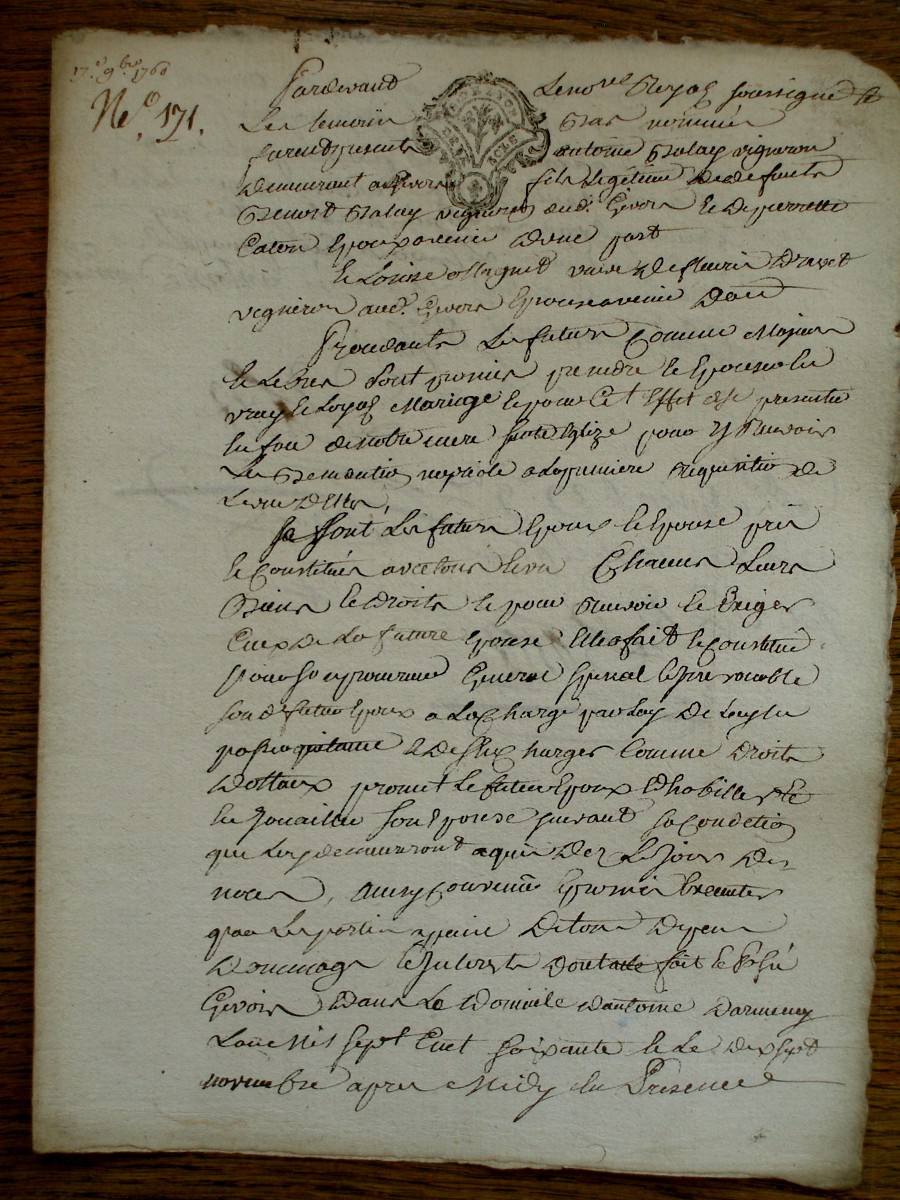 17e 9bre 1760
No 171.
Pardevant Le nore Royal soussigné et
Les temoins bas nommés
furent presents antoine Balay vigneron
demeurant a Givors fils Legitime de defunts
Benoit Balay vigneron aud. Givors et de pierrette
époux avenir d'une part
et Louise veuve de fleurie
vigneron aud. Givors Epouse avenir d'au
Procedants Les futurs Comme Majeurs
et Libres sont promis prendre et Epouser en
vray et Loyal Mariage et pour Cet Effet de se presenter
en face de notre mere sainte Eglize pour y Recevoir
La Benediction nuptiale a La premiere Requisition de
L'un d'Eux,
se sont Les futurs Epoux et Epouse pris
et Constitués avec tous et un Chacuns Leurs
Biens et Droits et pour Recevoir et Exiger
Ceux de La future Epouse Elle a fait et Constitué
pour son procureur General special et irrevocable
son dit futur Epoux a La Charge par Luy de
des Charges Comme Droits
Dottaux promet Le futur Epoux d'habiller et
En Jouailler son Epouse suivant sa Condition
que Luy demeureront acquis Dez Le Jour Des
noces, ainsy Convenu Promis Executer
par Les parties a peine De tous Depens
Dommages et Interests fait et Passé
Givors Dans Le Domicile d'antoine
L'an Mil sept Cent soixante et Le Dix sept
novembre apres Midy En Presence